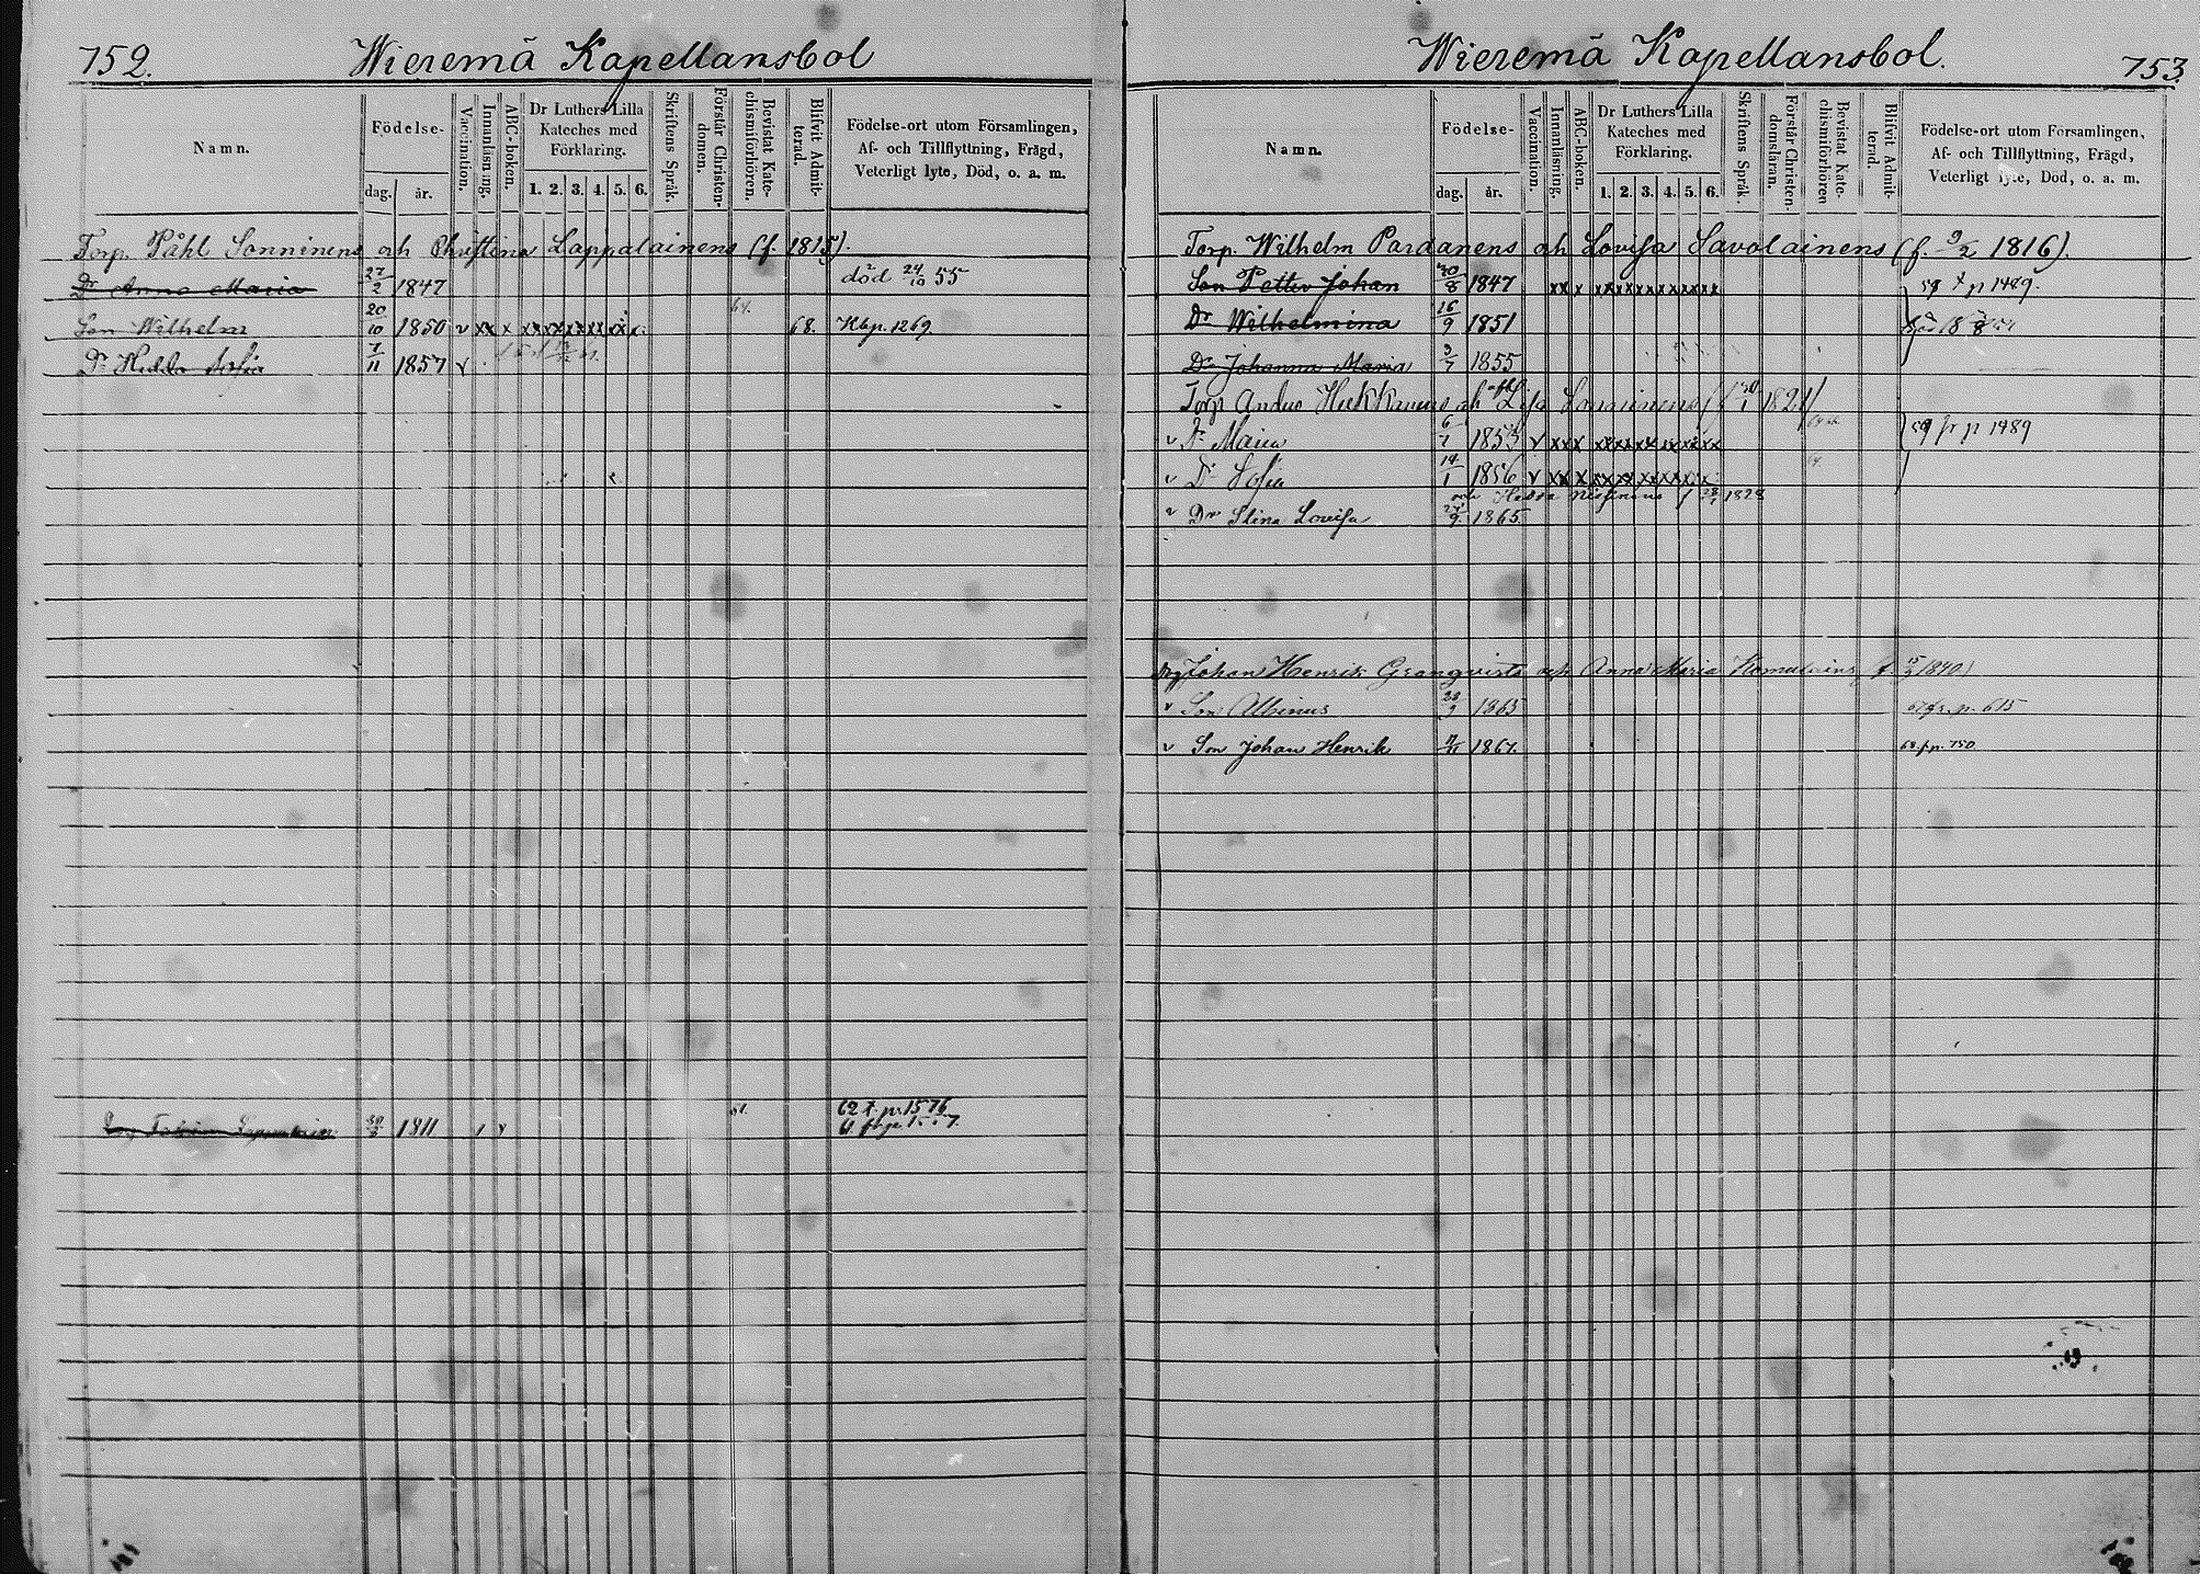 752. Wieremä Kapellansbol
Namn. Födelse- dag. år. Vaccination. Innanläsning. ABC-boken. Dr Luthers Lilla Kateches med Förklaring. 1. 2. 3. 4. 5. 6. Skriftens Språk. Förstår Christendomen. Bevistat Katechismiförhören. Blifvit Admitterad. Födelse-ort utom Församlingen, Af- och Tillflyttning, Frägd, Veterligt lyte, Död, o. a. m.
Torp. Påhl Sonninens och Christina Lappalainens (f. 1815).
Dr Anna Maria 27/2 1847 död 24/10 55
Son Wilhelm 20/10 1850 v xx x xx xx xx xx xx x 64. 68. Kbp. 1269.
Dr Hedda Sofia 7/11 1857 v
1811 62 t. p. 1576
753. Wieremä Kapellansbol.
Namn. Födelse- dag. år. Vaccination. Innanläsning. ABC-boken. Dr Luthers Lilla Kateches med Förklaring. 1. 2. 3. 4. 5. 6. Skriftens Språk. Förstår Christendomsläran. Bevistat Katechismiförhören Blifvit Admitterad. Födelse-ort utom Församlingen, Af- och Tillflyttning, Frägd, Veterligt lyte, Död, o. a. m.
Torp. Wilhelm Pardanens och Lovisa Savolainens (f. 9/2 1816).
Son Petter Johan 30/8 1847 xx x xx xx xx xx xx xx 59 t p 1489.
Dr Wilhelmina 16/9 1851
Dr Johanna Maria 3/7 1855
Torp Anders och Lisa 1821
v Dr Maria 6/7 1853 v xx x xx xx xx xx xx xx 59 fr p 1489
v Dr Sofia 14/1 1856 v xx x xx xx xx xx
och Hedda 1828
v Dr Stina Lovisa 1865
Johan Henrik Granqvists och Anna Maria Komulains 1840)
v Son Albinus 1863 67 fr. p. 615
v Son Johan Henrik 1867. 68. f. p. 750